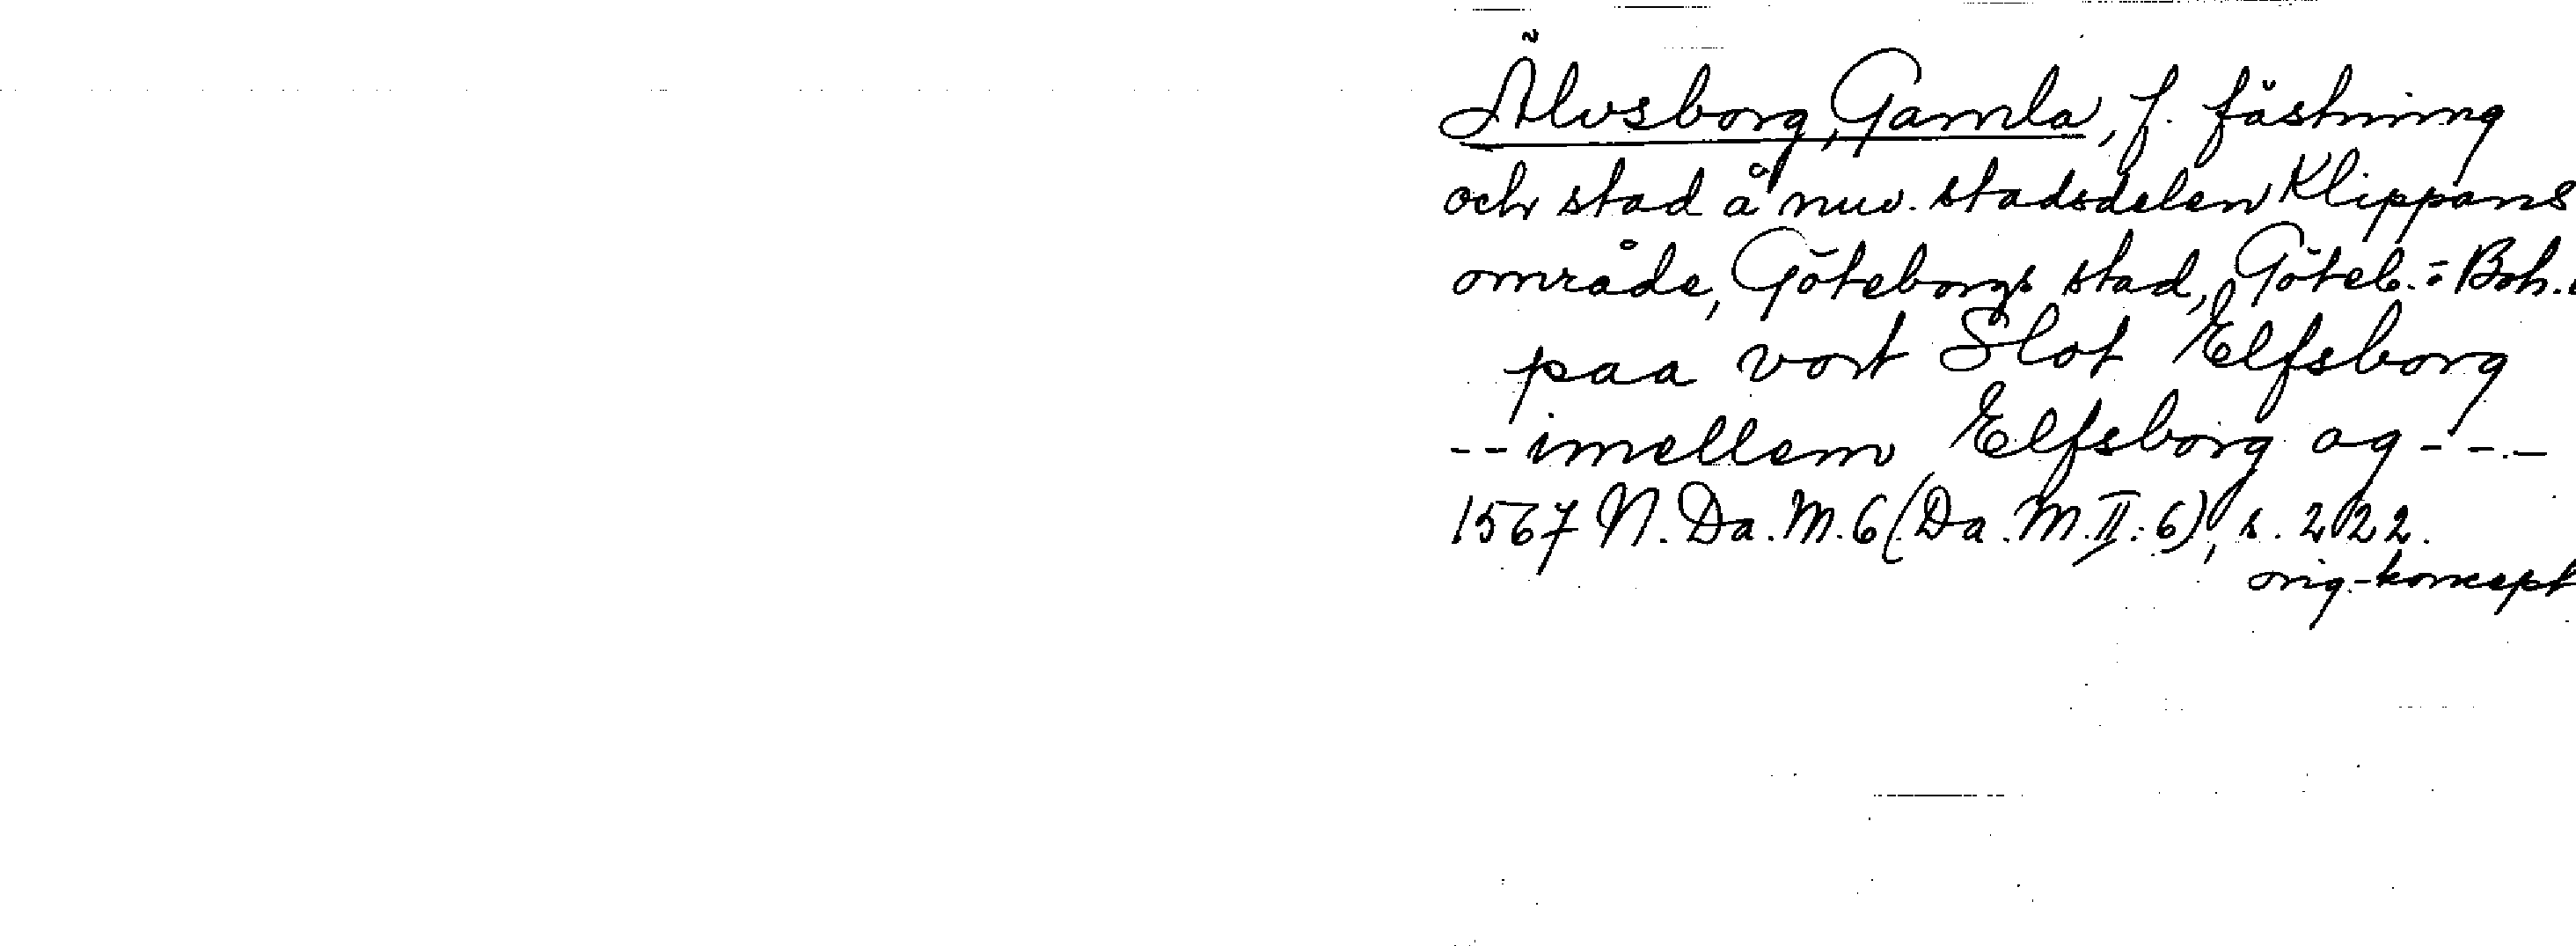 Älvsborg, Gamla, f. fästning
och stad å nuv. stadsdelen Klippans
område, Göteborgs stad, Göteb.- o. Boh.
paa vort Slot Elfsborg
-- imellem Elfsborg og ---
1567 N. Da. M. 6 (Da. M. II: 6), s. 222.
orig.-koncept